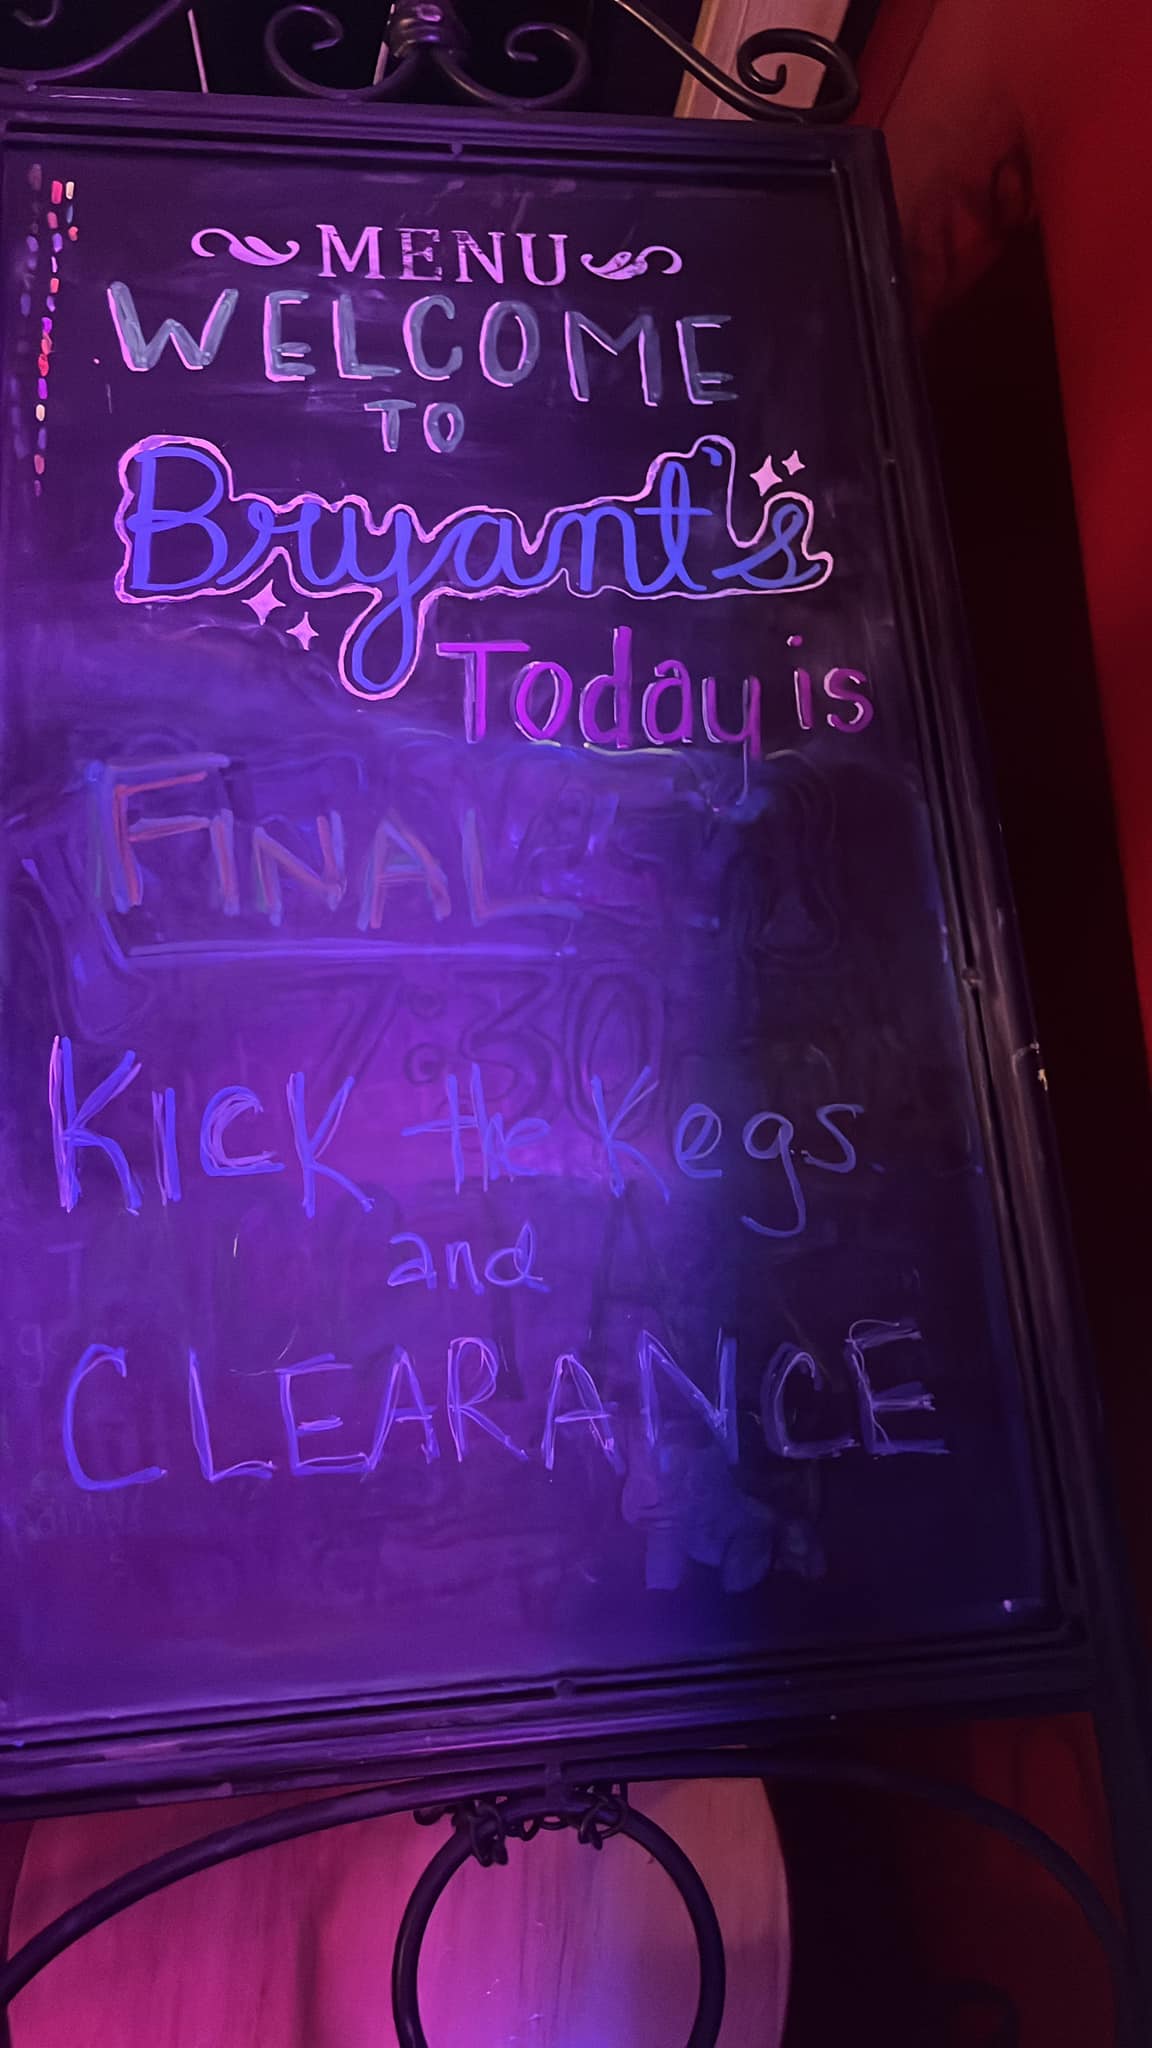 MENU
WELCOME
TO
Bryant's
Today is
FINAL
7:30
KICK the Kegs
and
CLEARANCE